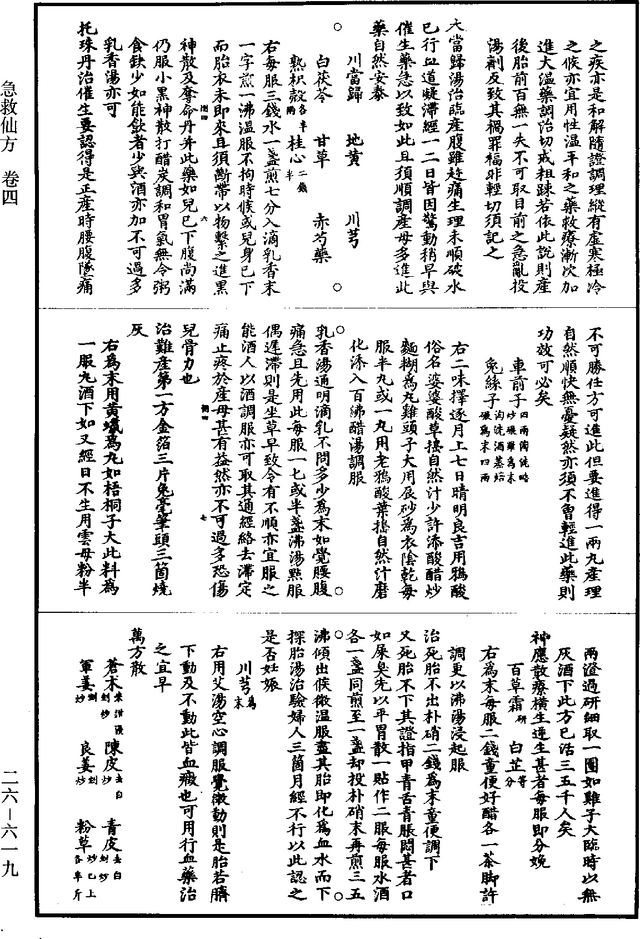 急救仙方　卷四
二六－六一九
之疾亦是和解隨證調理縱有虛寒極冷
之候亦宜用性溫平和之藥救療漸次加
進大溫藥調治切戒粗踈若依此說則產
後胎前百無一失不可取目前之急亂投
湯劑反致其禍罪福非輕切須記之
大當歸湯治臨產腹雖趂痛生理未順破水
已行血道凝滯經一二日皆因驚動稍早與
催生藥急以致如此且須順調產母多進此
藥自然安泰
川當歸　地黃　川芎
白茯苓　甘草　赤芍藥
熟枳殼各半兩　桂心二錢半
右每服三錢水一盞煎七分入滴乳香末
一字煎一沸溫服不拘時候或兒身已下
而胎衣未即來且須斷帶以物繫之進黑
神散及奪命丹并此藥如兒已下腹尚滿
仍服小黑神散打醋炭調和胃氣無令粥
食缺少如能飲者少與酒亦加不可過多
乳香湯亦可
托珠丹治催生要認得是正產時腰腹墜痛
不可勝任方可進此但要進得一兩丸產理
自然順快無憂疑然亦須不曾輕進此藥則
功效可必矣
車前子四兩
兔絲子
右二味擇逐月上七日晴明良吉用鴉酸
俗名婆婆酸草挼自然汁少許添酸醋炒
麵糊為丸雞頭子大用辰砂為衣陰乾每
服半丸或一丸用老鴉酸葉挼自然汁磨
化添入百沸醋湯調服
乳香湯通明滴乳不問多少為末如覺腰腹
痛急且先用此每服一七或半盞沸湯點服
偶遲滯則是坐草早致令有不順亦宜服之
能酒人以酒調服亦可取其通經絡去滯定
痛止疼於產母甚有益然亦不可過多恐傷
兒骨力也
治難產第一方金箔三片兔毫筆頭三箇燒
灰
右為末用黃蠟為丸如梧桐子大此料為
一服丸酒下如又經日不生用雲母粉半
兩澄過研細取一團如雞子大臨時以無
灰酒下此方已活三五千人矣
神應散療橫生逆生甚者每服即分娩
百草霜研　白芷等分
右為末每服二錢童便好醋各一茶脚許
調更以沸湯浸起服
治死胎不出朴硝二錢為末童便調下
又死胎不下其證指甲青舌青脹悶甚者口
如屎臭先以平胃散一貼作二服每服水酒
各一盞同煎至一盞却投朴硝末再煎三五
沸傾出候微溫服盡其胎即化為血水而下
探胎湯治驗婦人三箇月經不行以此認之
是否妊娠
川芎為末
右用艾湯空心調服覺微動則是胎若臍
下動及不動此皆血瘕也可用行血藥治
之宜早
萬方散
蒼朮　陳皮去白　青皮去白
軍姜　良姜　粉草